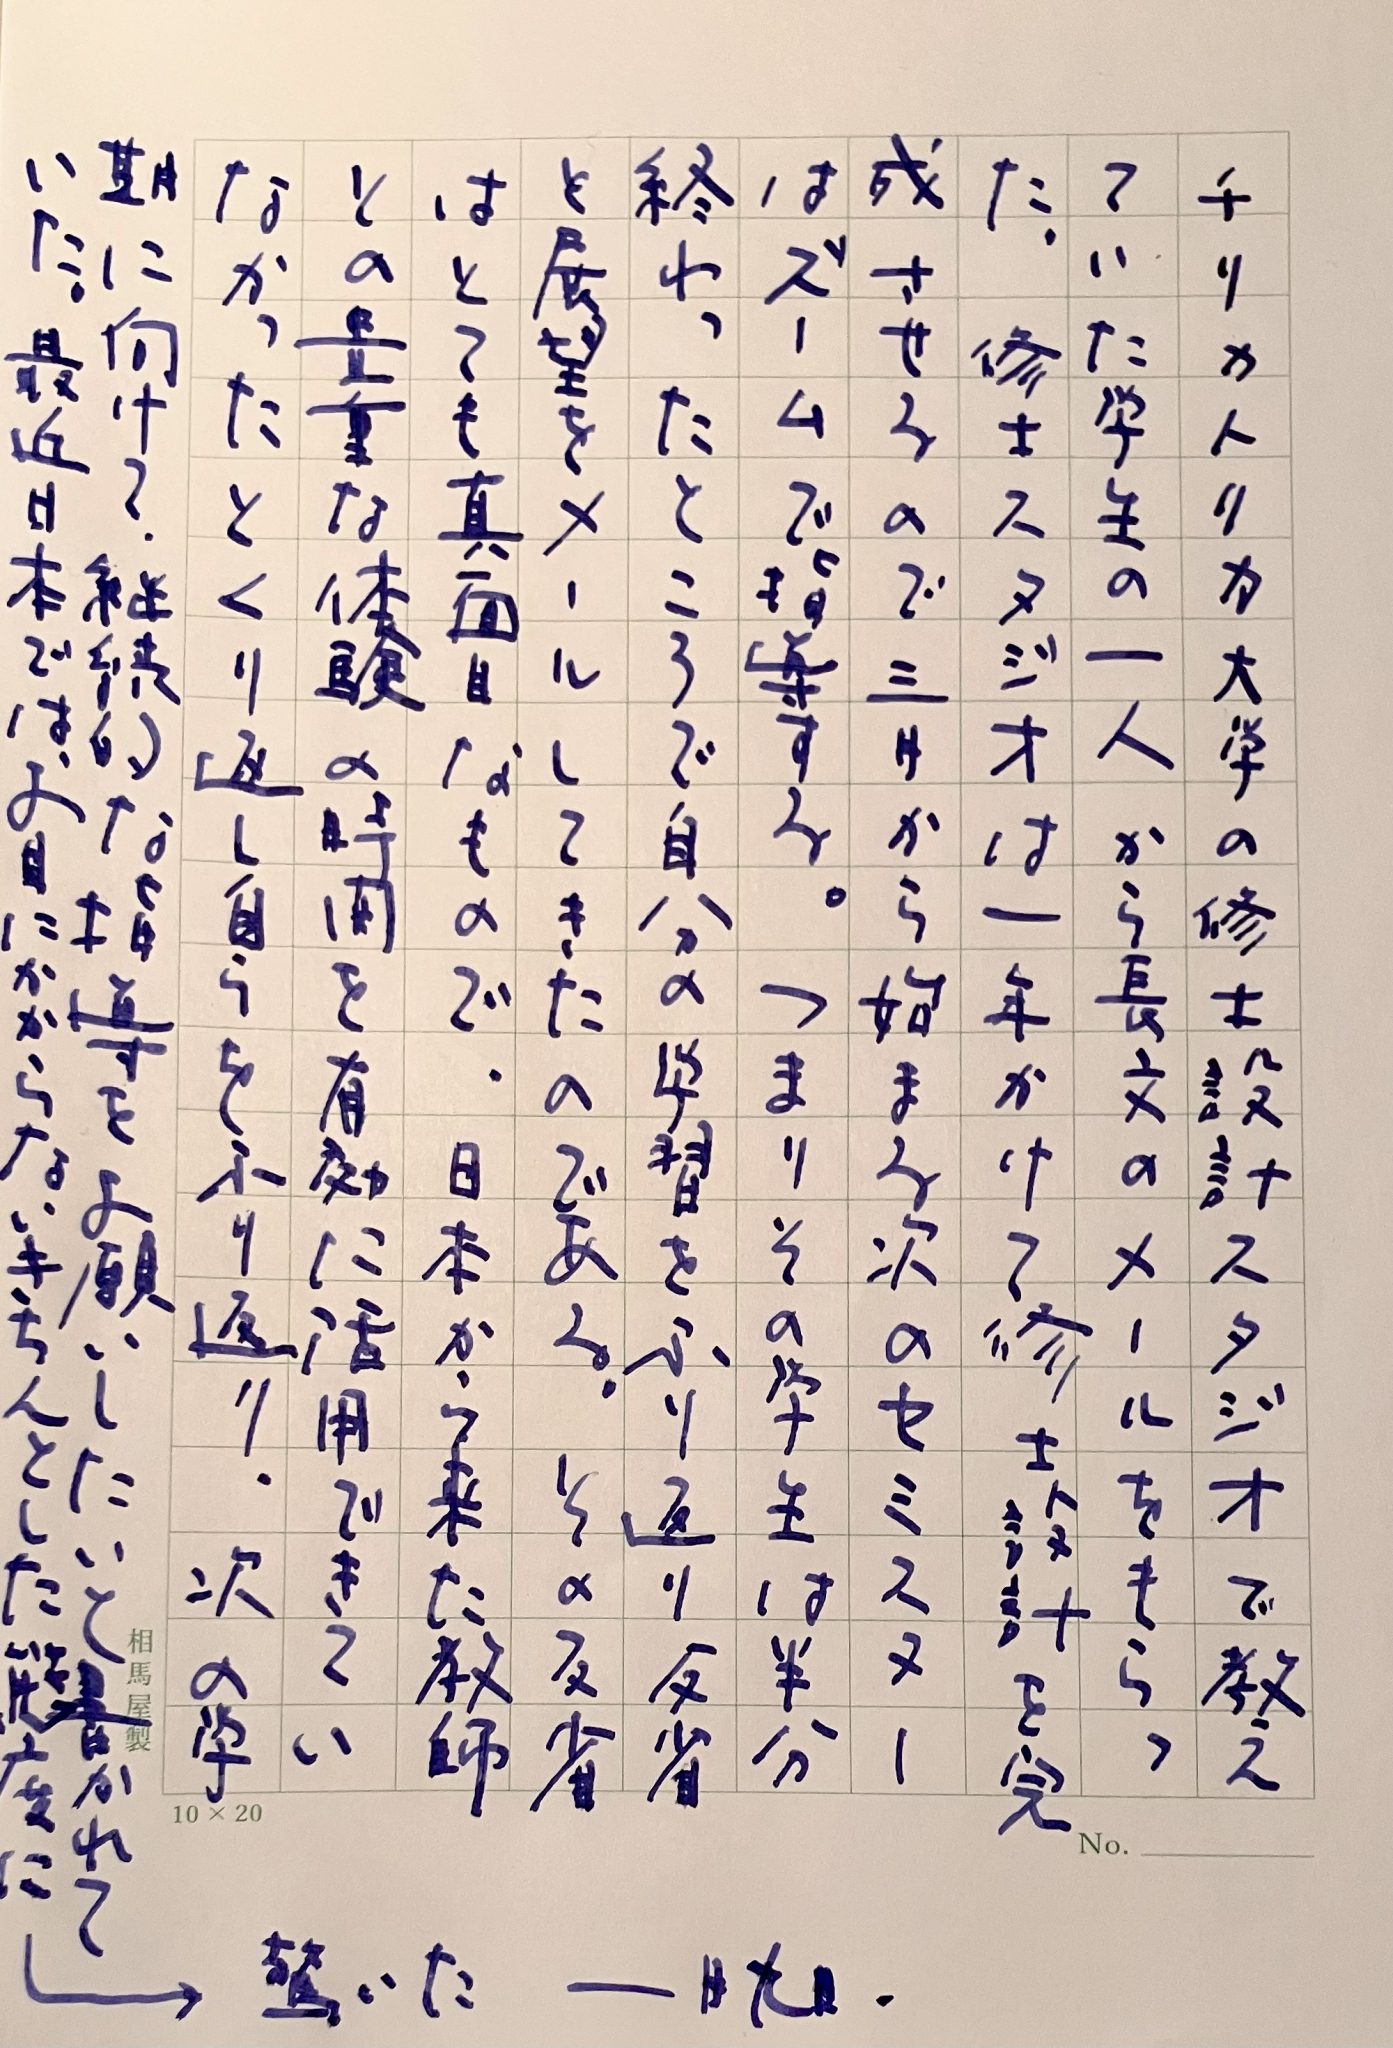 チリカトリカ大学の修士設計スタジオで教え
ていた学生の一人から長文のメールをもらっ
た。修士スタジオは一年かけて修士設計を完
成させるので三月から始まる次のセミスター
はズームで指導する。つまりその学生は半分
終わったところで自分の学習をふり返り反省
と展望をメールしてきたのである。その反省
はとても真面目なもので、日本から来た教師
との貴重な体験の時間を有効に活用できてい
なかったとくり返し自らをふり返り、次の学
期に向けて、継続的な指導をお願いしたいと書かれて
いた。最近日本ではお目にかからないきちんとした態度に
→驚いた 一月
相馬屋製
10 × 20
No.